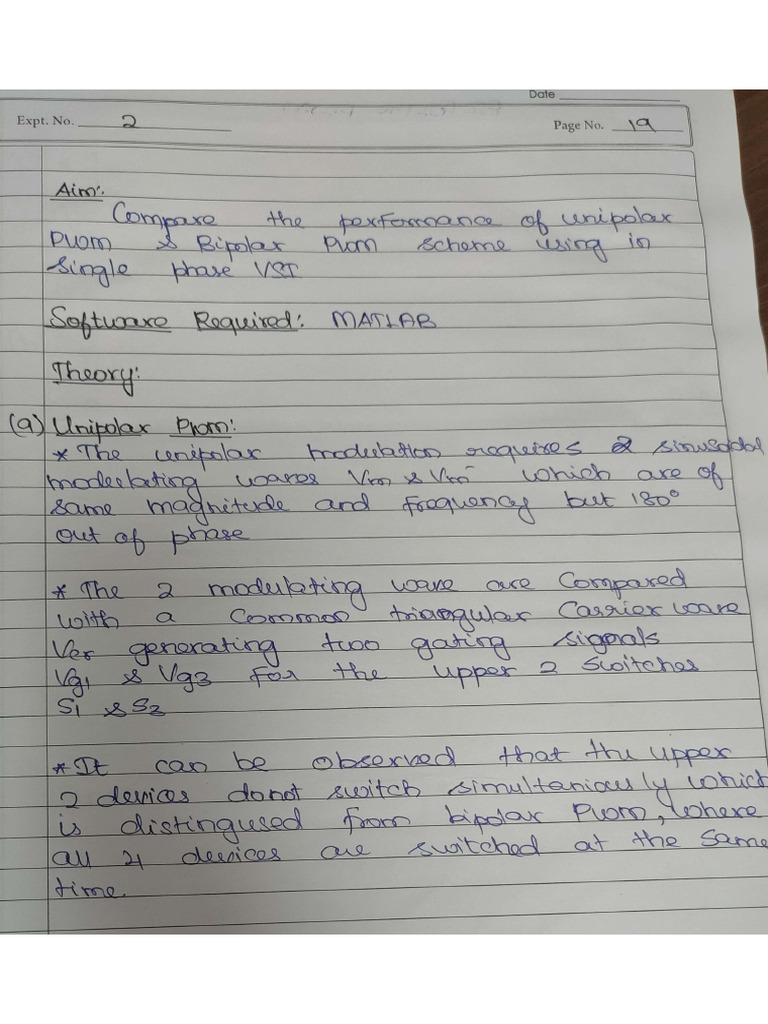 Date
Expt. No. 2
Page No. 19
Aim:
Compare the performance of unipolar
PWM & Bipolar PWM scheme using in
single phase VSI
Software Required: MATLAB
Theory:
(a) Unipolar PWM:
* The unipolar modulation requires 2 sinusodal
modulating waves Vm & Vm⁻ which are of
same magnitude and frequency but 180°
out of phase
* The 2 modulating wave are compared
with a common triangular carrier wave
Vcr generating two gating signals
Vg1 & Vg3 for the upper 2 switches
S1 & S3
* It can be observed that the upper
2 devices donot switch simultaniously which
is distingused from bipolar PWM, where
all 4 devices are switched at the same
time.